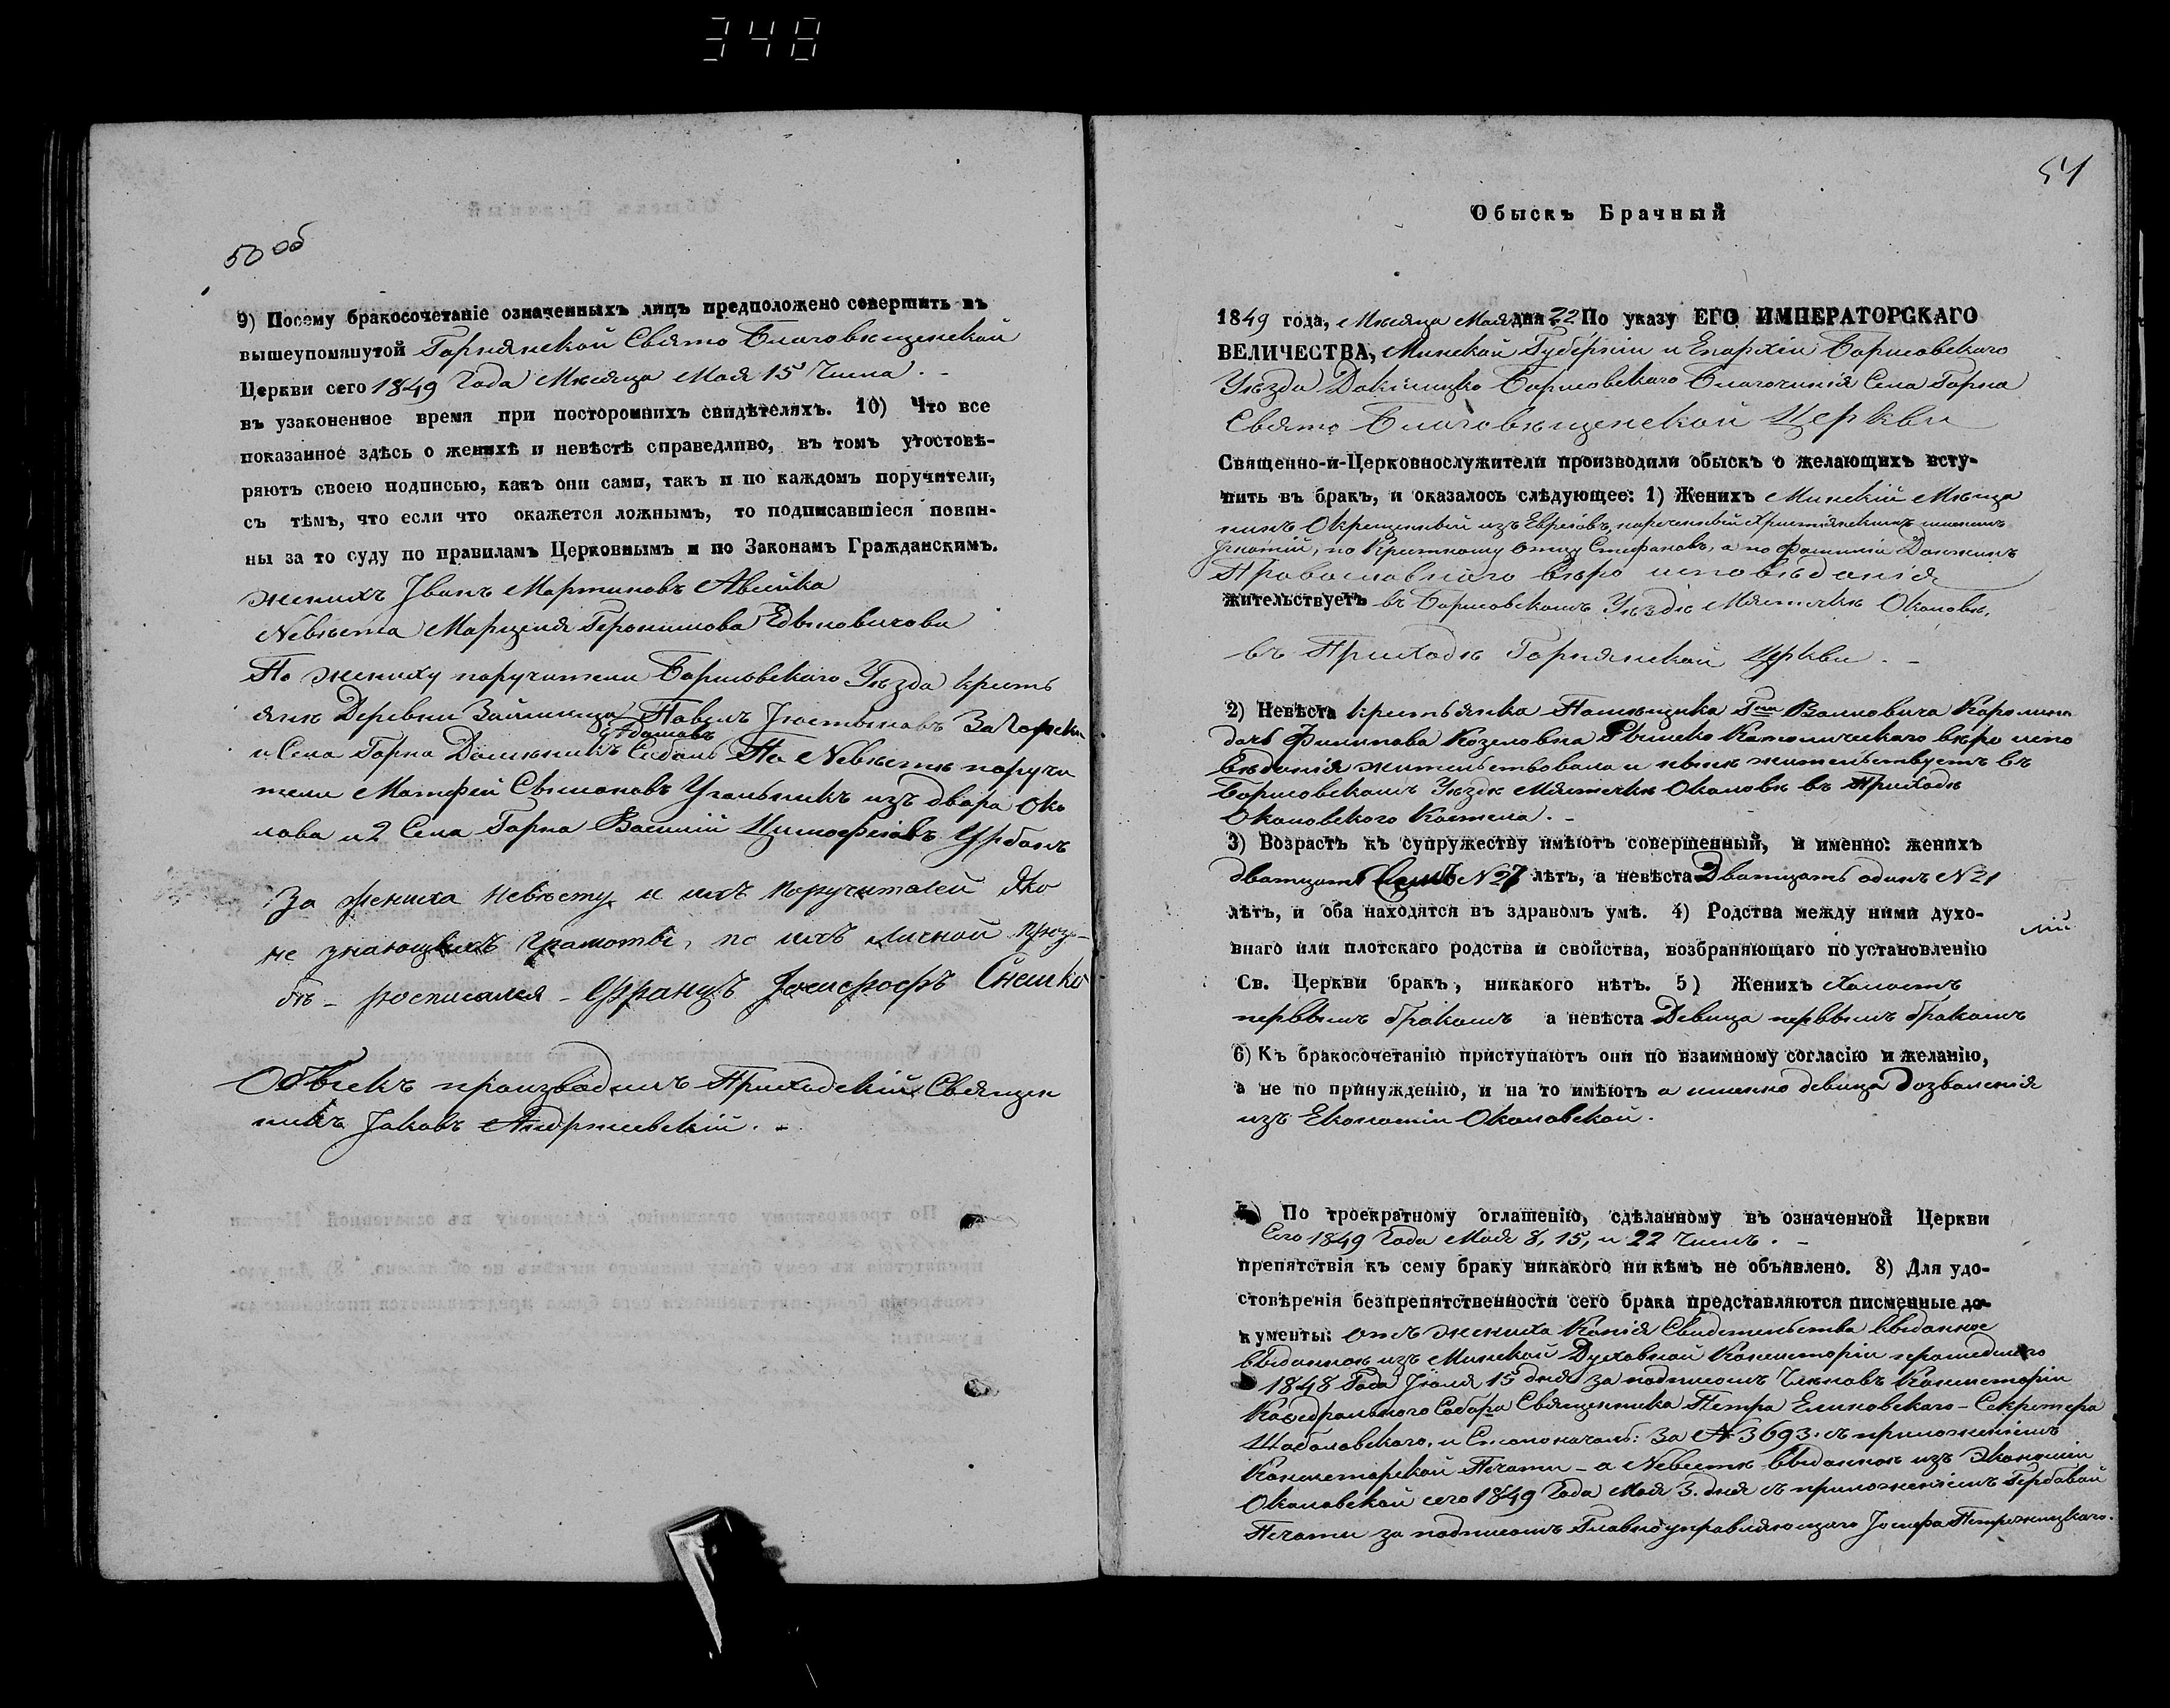 348
50 об
9) Посему бракосочетаніе означенныхъ лицъ предположено совершить въ
вышеупомянутой Горнянской Свято Благовѣщенской
Церкви сего 1849 Года Мѣсяца Мая 15 Числа. -
въ узаконенное время при постороннихъ свидѣтеляхъ. 10) Что все
показанное здѣсь о женихѣ и невѣстѣ справедливо, въ томъ утостовѣ-
ряютъ своею подписью, какъ они сами, такъ и по каждомъ поручители,
съ тѣмъ, что если что окажется ложнымъ, то подписавшіеся повин-
ны за то суду по правиламъ Церковнымъ и по Законамъ Гражданскимъ.
женихъ Іванъ Мартиновъ Авсейка
Невѣста Марцеля Геронимова
По жениху поручители Борисовскаго Уѣзда крестъ
янѣ Деревни Павелъ
Адамовъ
и Села Горна По Невѣстѣ поручи
тели Матфей Сымоновъ Угольникъ изъ двора Око
лова и 2 Села Горна Василій Цимофеіовъ Урбанъ
За жениха невѣсту и ихъ поручителей яко
не знающихъ грамоты, по ихъ личной прозь-
бѣ - росписался - Францъ Іосифовъ
Обыскъ производилъ Приходскій Священ
никъ Іаковъ Андржеевскій. -
51
Обыскъ Брачный
1849 года, Мѣсяца Мая дня 22 По указу ЕГО ИМПЕРАТОРСКАГО
ВЕЛИЧЕСТВА, Минской Губерніи и Епархіи Борисовскаго
Уѣзда Докшицко Борисовскаго Благочинія Села Горна
Свято Благовѣщенской Церкви
Священно-и-Церковнослужители производили обыскъ о желающихъ всту-
пить въ бракъ, и оказалось слѣдующее: 1) Женихъ Минскій Мѣща
нинъ Окрещенный изъ Евреіовъ, нареченный Христіянскимъ именемъ
Игнатій, по Крестному Отцу Стефановъ, а по фамиліи
Православнаго вѣро исповѣданія
жительствуетъ въ Борисовскомъ Уѣздѣ Мястечкѣ Околовѣ,
въ Приходѣ Горнянской Церкви. -
2) Невѣста крестьянка Помѣщика Гна Ваньковича Каролина
дочь Филипова Козеловна Рымско Католическаго вѣро испо
вѣданія жительствовала и нынѣ жительствуетъ въ
Борисовскомъ Уѣздѣ Мястечкѣ Околовѣ въ Приходѣ
Околовскаго Костела. -
3) Возрастъ къ супружеству имѣютъ совершенный, и именно: женихъ
дватцать Семь N 27 лѣтъ, а невѣста Дватцать одинъ N 21
лѣтъ, и оба находятся въ здравомъ умѣ. 4) Родства между ними духо-
внаго или плотскаго родства и свойства, возбраняющаго по установленію
Св. Церкви бракъ, никакого нѣтъ. 5) Женихъ Холостъ
первымъ бракомъ а невѣста Девица первымъ бракомъ
6) Къ бракосочетанію приступаютъ они по взаимному согласію и желанію,
а не по принужденію, и на то имѣютъ а именно девица дозволенія
изъ Економіи Околовской.
7) По троекратному оглашенію, сдѣланному въ означенной Церкви
Сего 1849 Года Мая 8, 15, и 22 Числъ. -
препятствія къ сему браку никакого никѣмъ не объявлено. 8) Для удо-
стовѣренія безпрепятственности сего брака представляются писменные до-
кументы: отъ жениха Копія Свидетельства выданное
выданною изъ Минской Духовной Консисторіи прошедшаго
1848 Года Іюля 15 дня за подписомъ Членовъ Консисторіи
Каѳедральнаго Собора Священника Петра Елиновскаго - Секретера
и Столоначаль: За № 3693. съ приложеніемъ
Консисторской Печати - а Невѣстѣ выданною изъ Экономіи
Околовской сего 1849 Года Мая 3. дня съ приложеніемъ Гербовой
Печати за подписомъ Главноуправляющаго Іосифа